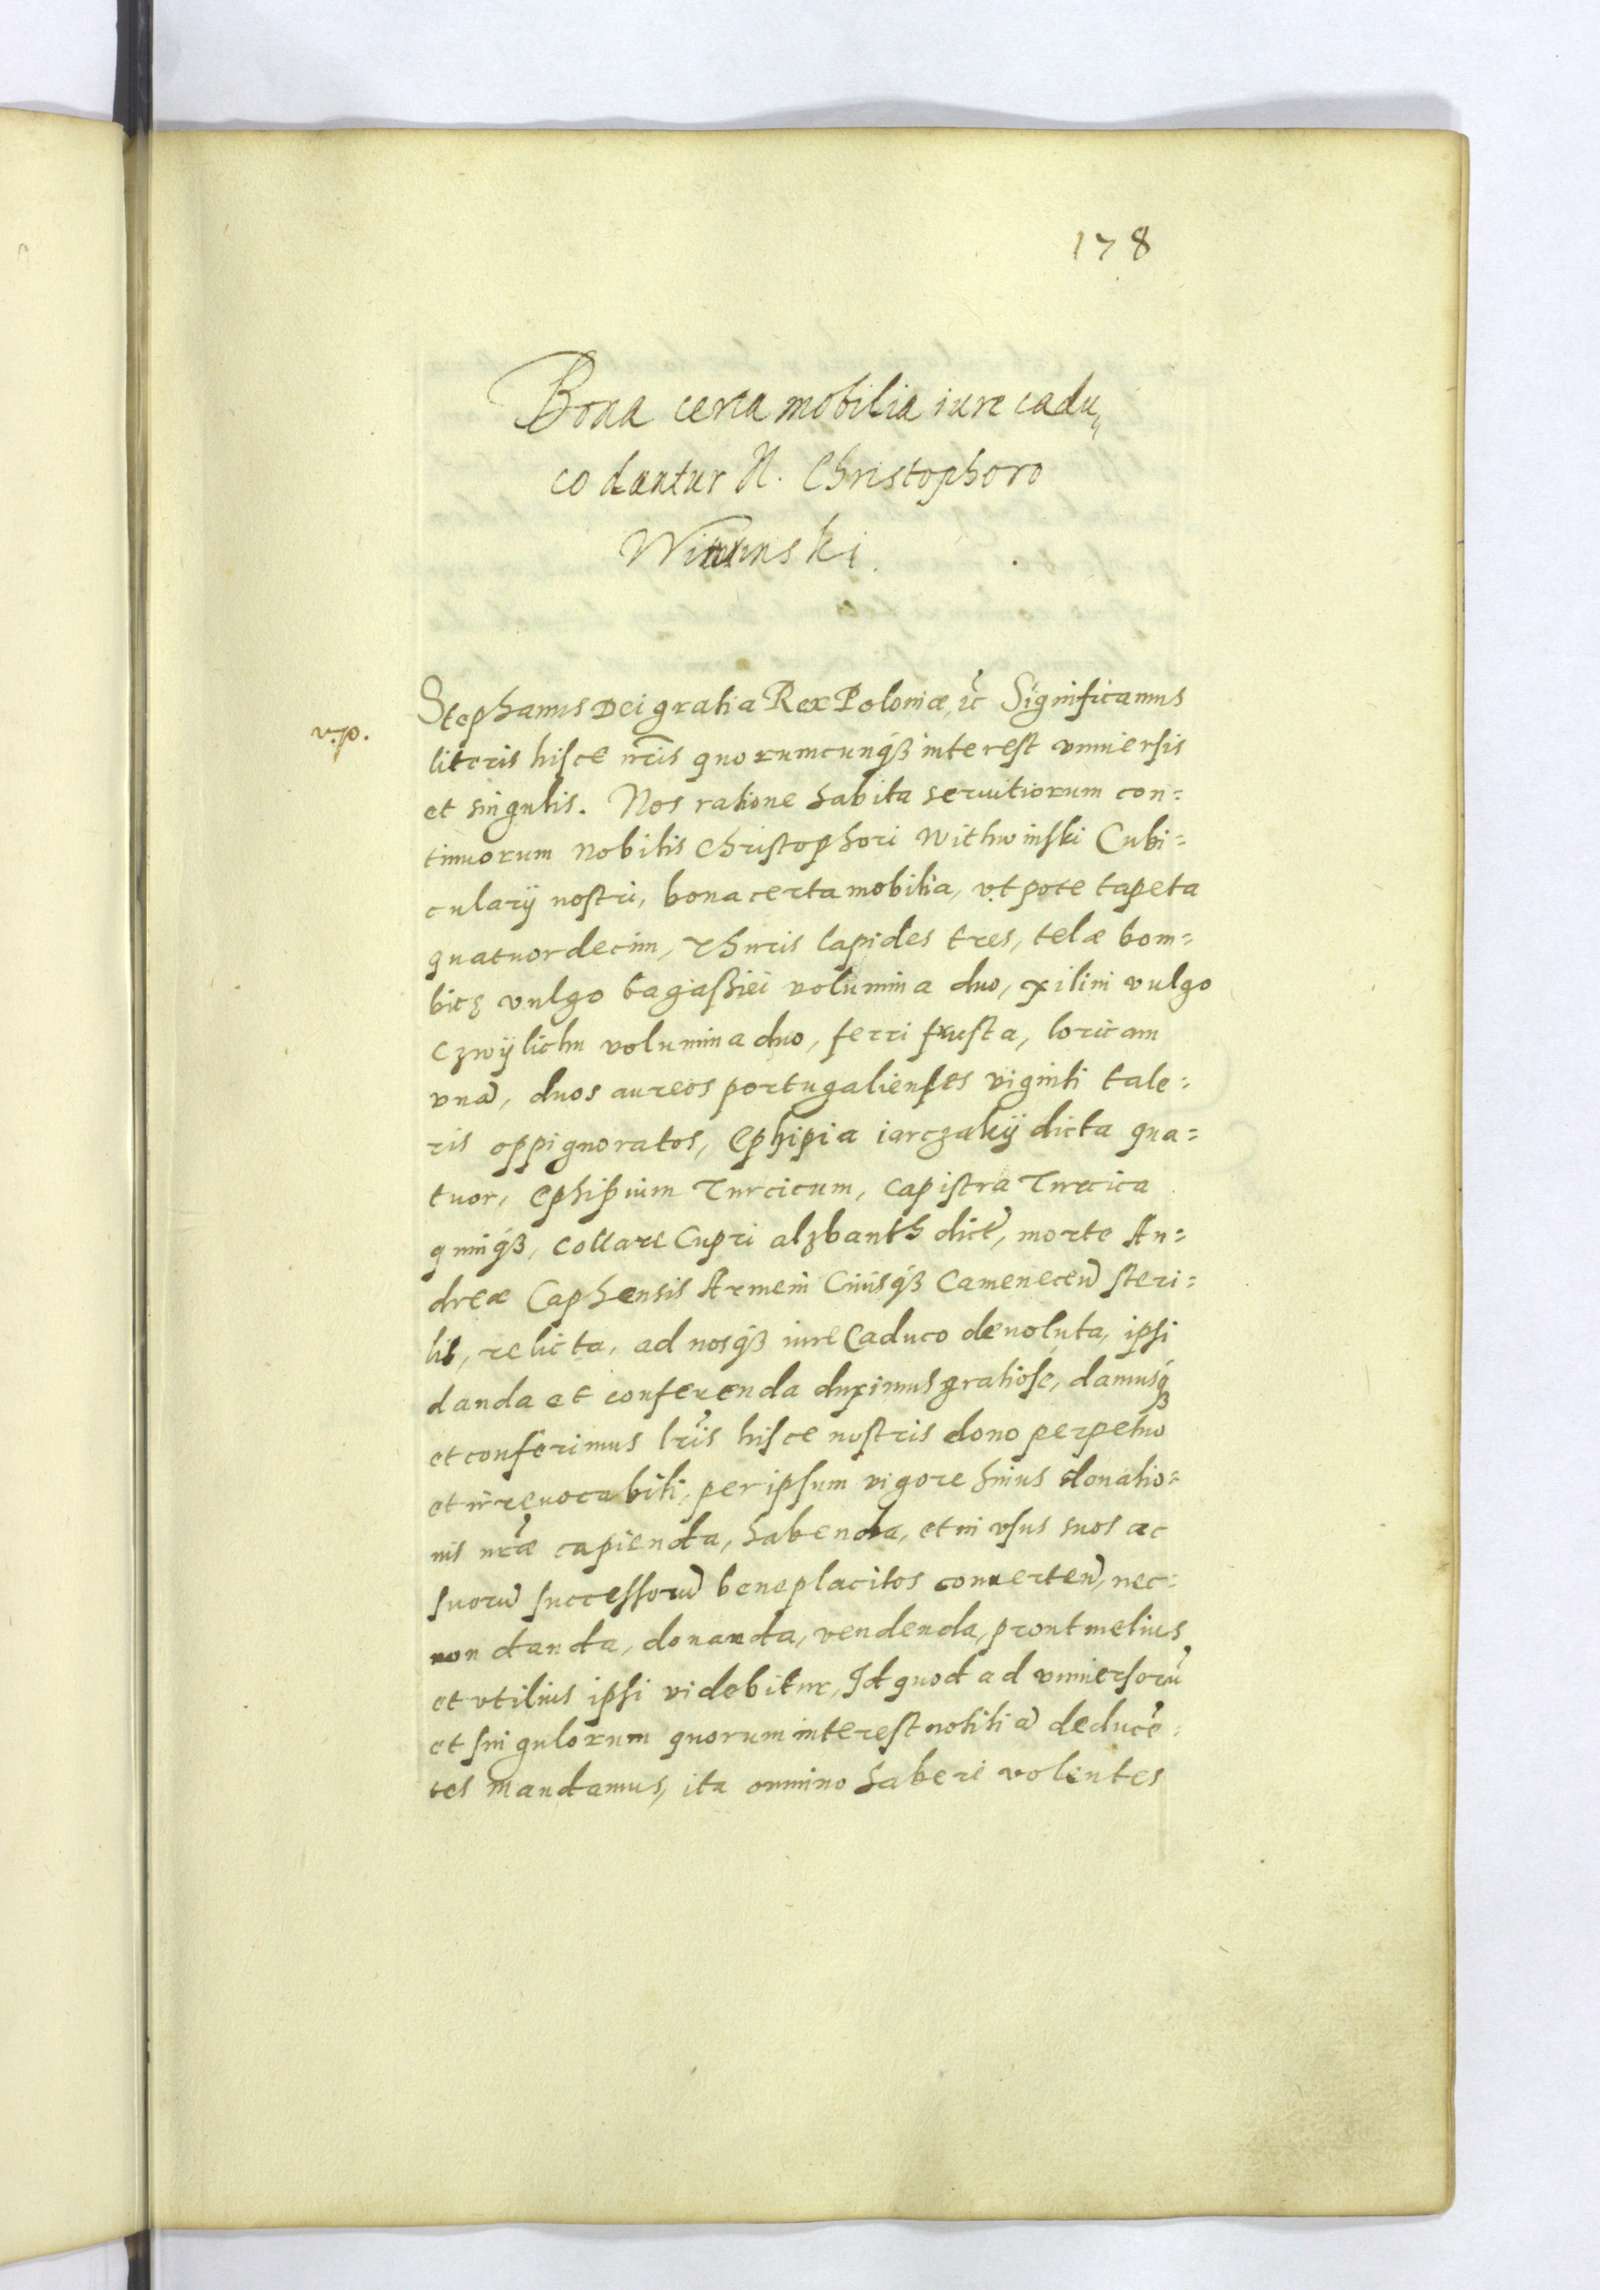 178
Bona certa mobilia iure cadu„
co dantur N. Christophoro
v.p.
Stephanus Dei gratia Rex Poloniæ, &c Significamus
literis hisce nr̃is quorumcunqȝ interest vniuersis
et singulis. Nos ratione habita seruitiorum con=
tinuorum Nobilis Christophori Withwinski Cubi=
cularij nostri, bona certa mobilia, vt pote tapeta
quatuordecim, thuris lapides tres, telæ bom=
bicę vulgo bagaßiei volumina duo, xilini vulgo
Czwÿlichu volumina duo, ferri frusta, loricam
vnã, duos aureos portugalienses viginti tale=
ris oppignoratos, Ephipia iarczakÿ dicta qua=
tuor, Ephipium Turcicum, Capistra Turcica
quinqȝ, Collare Cupri alzbanth dict̃, morte An=
dreæ Caphensis Armeni Ciuisqȝ Camenecen̄ steri=
lis, relicta, ad nosqȝ iure Caduco deuoluta, ipsi
danda et conferenda duximus gratiose, damusqȝ
et conferimus lr̃is hisce nostris dono perpetuo
et irreuocabili, per ipsum vigore huius donatio=
nis nr̃æ capienda, habenda, et in vsus suos ac
suorũ successorũ beneplacitos conuerten̄, nec=
non danda, donanda, vendenda, prout melius
et vtilius ipsi videbitur, Id quod ad vniuersorũ
et singulorum quorum interest notitiã deducẽ=
tes mandamus, ita omnino haberi volentes